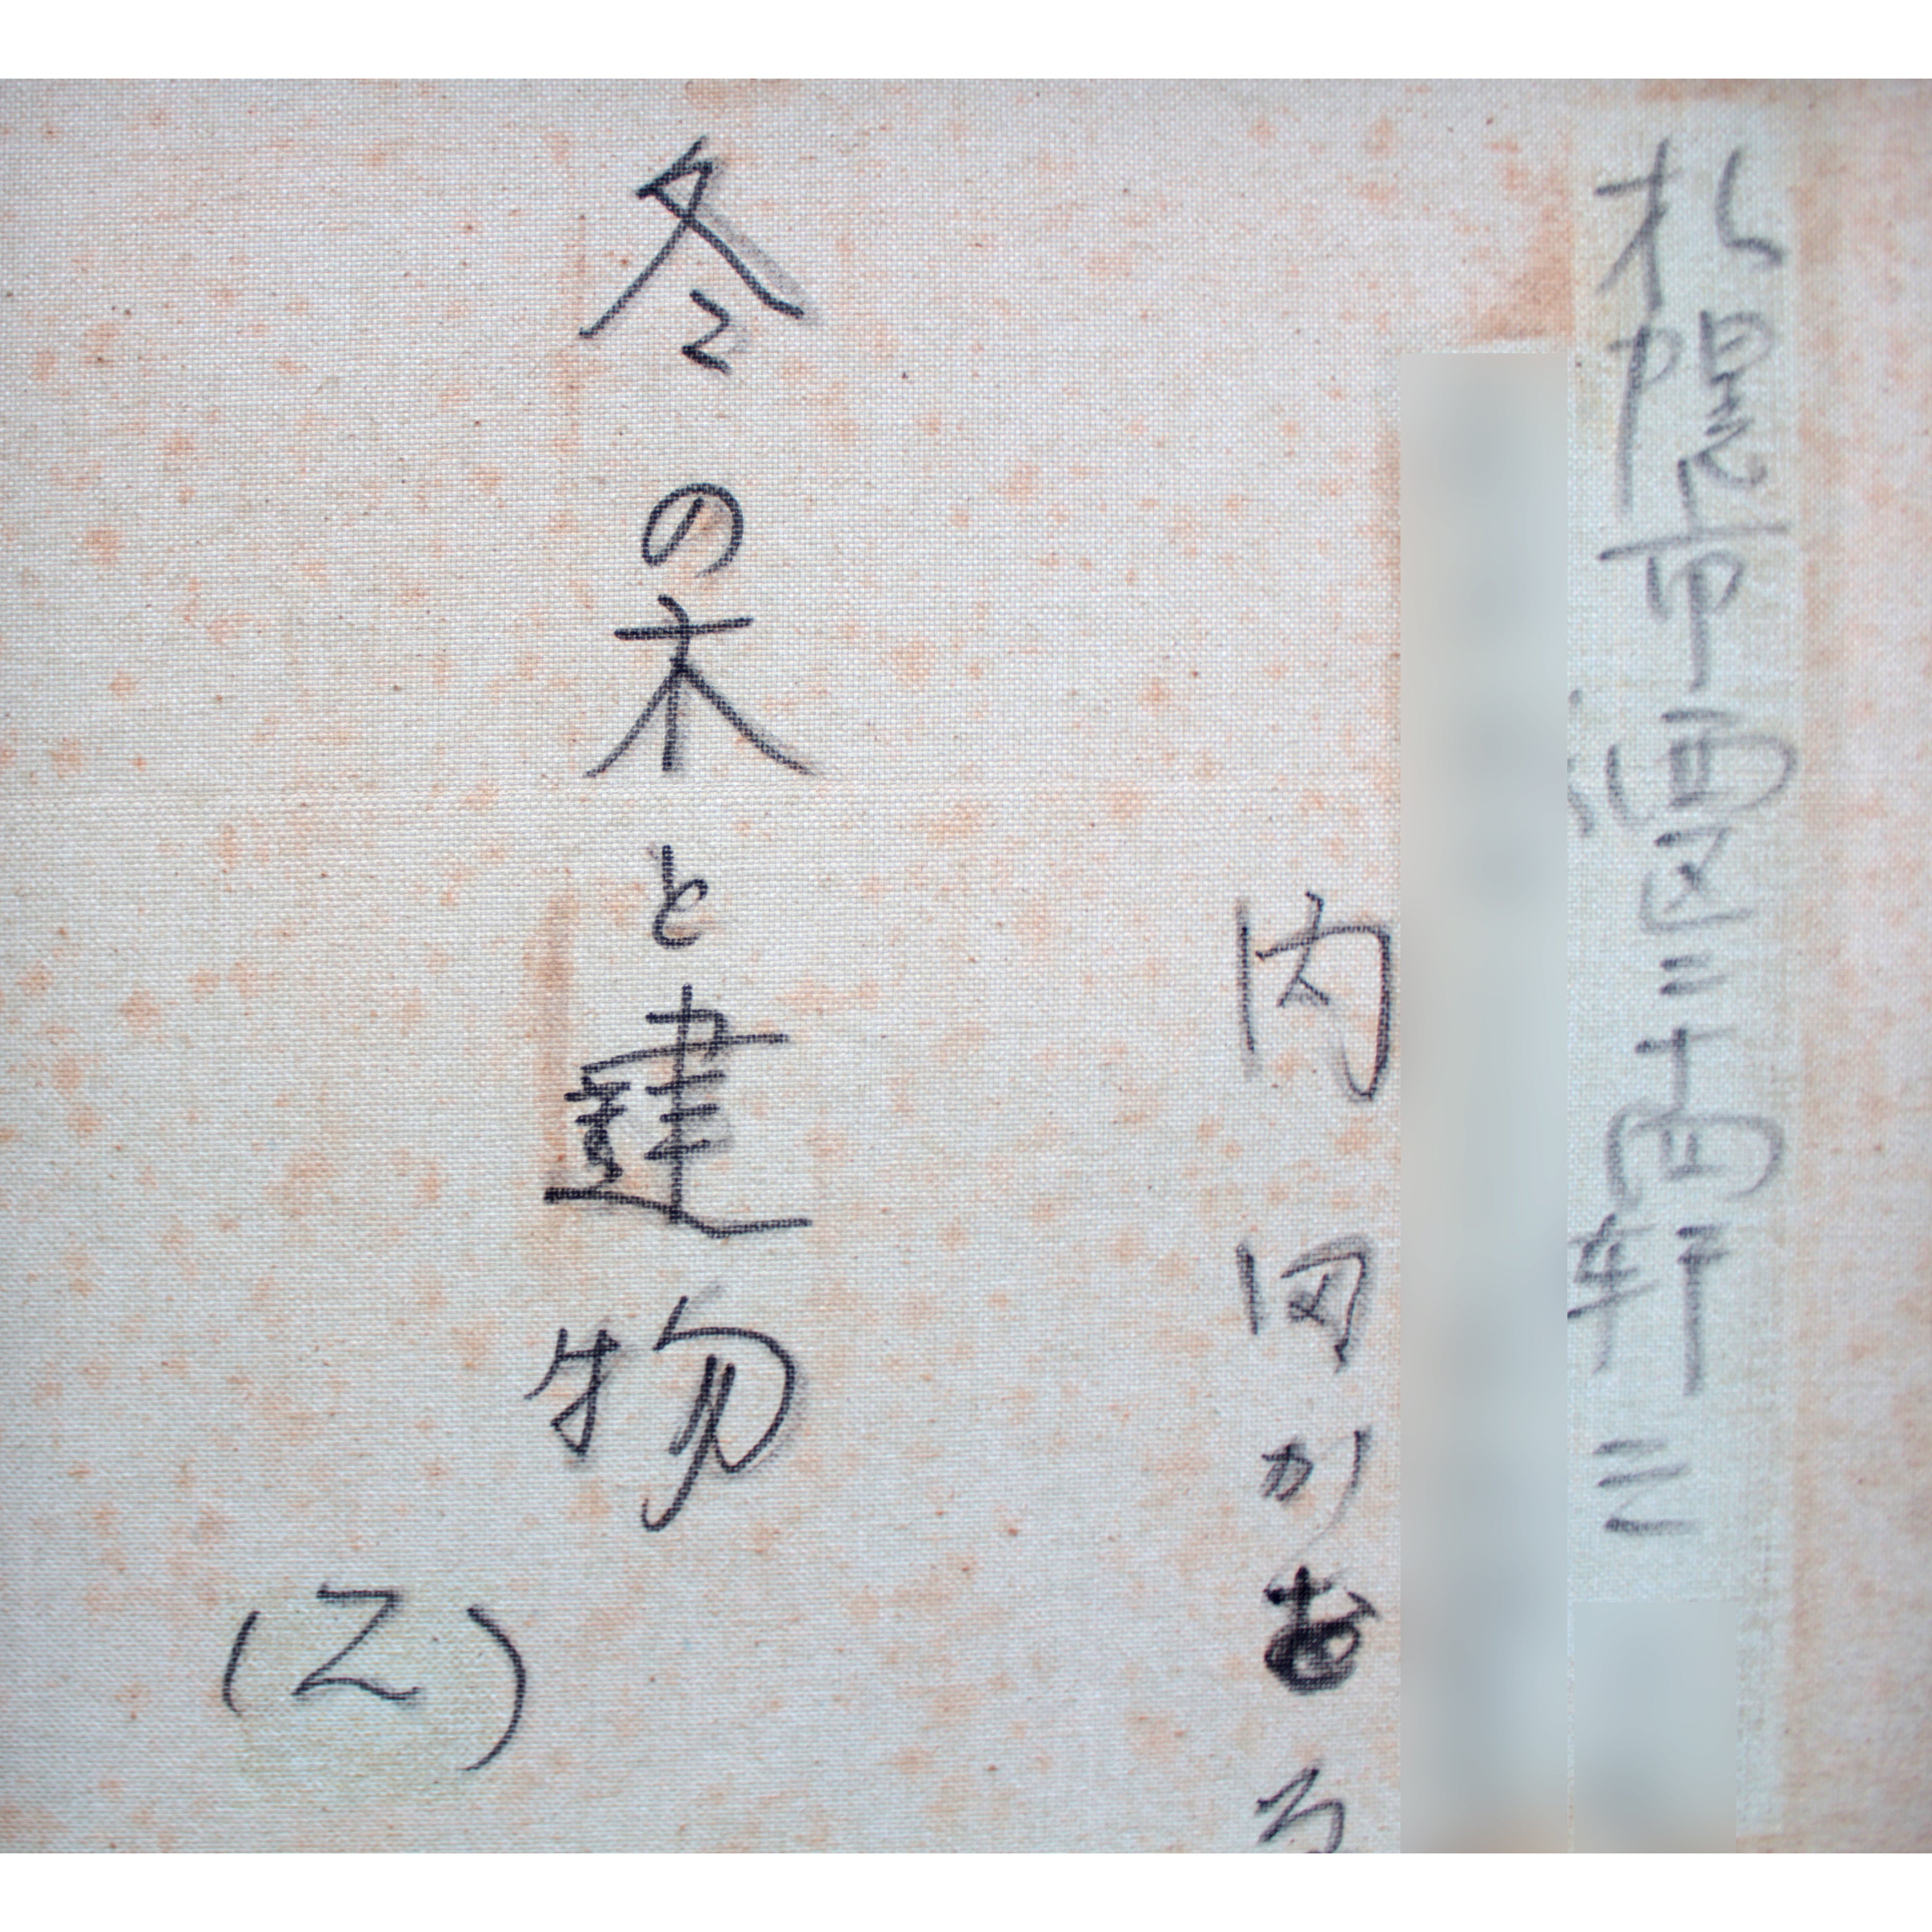 札幌市西区二十四軒三
内田かおる
冬の木と建物
(2)